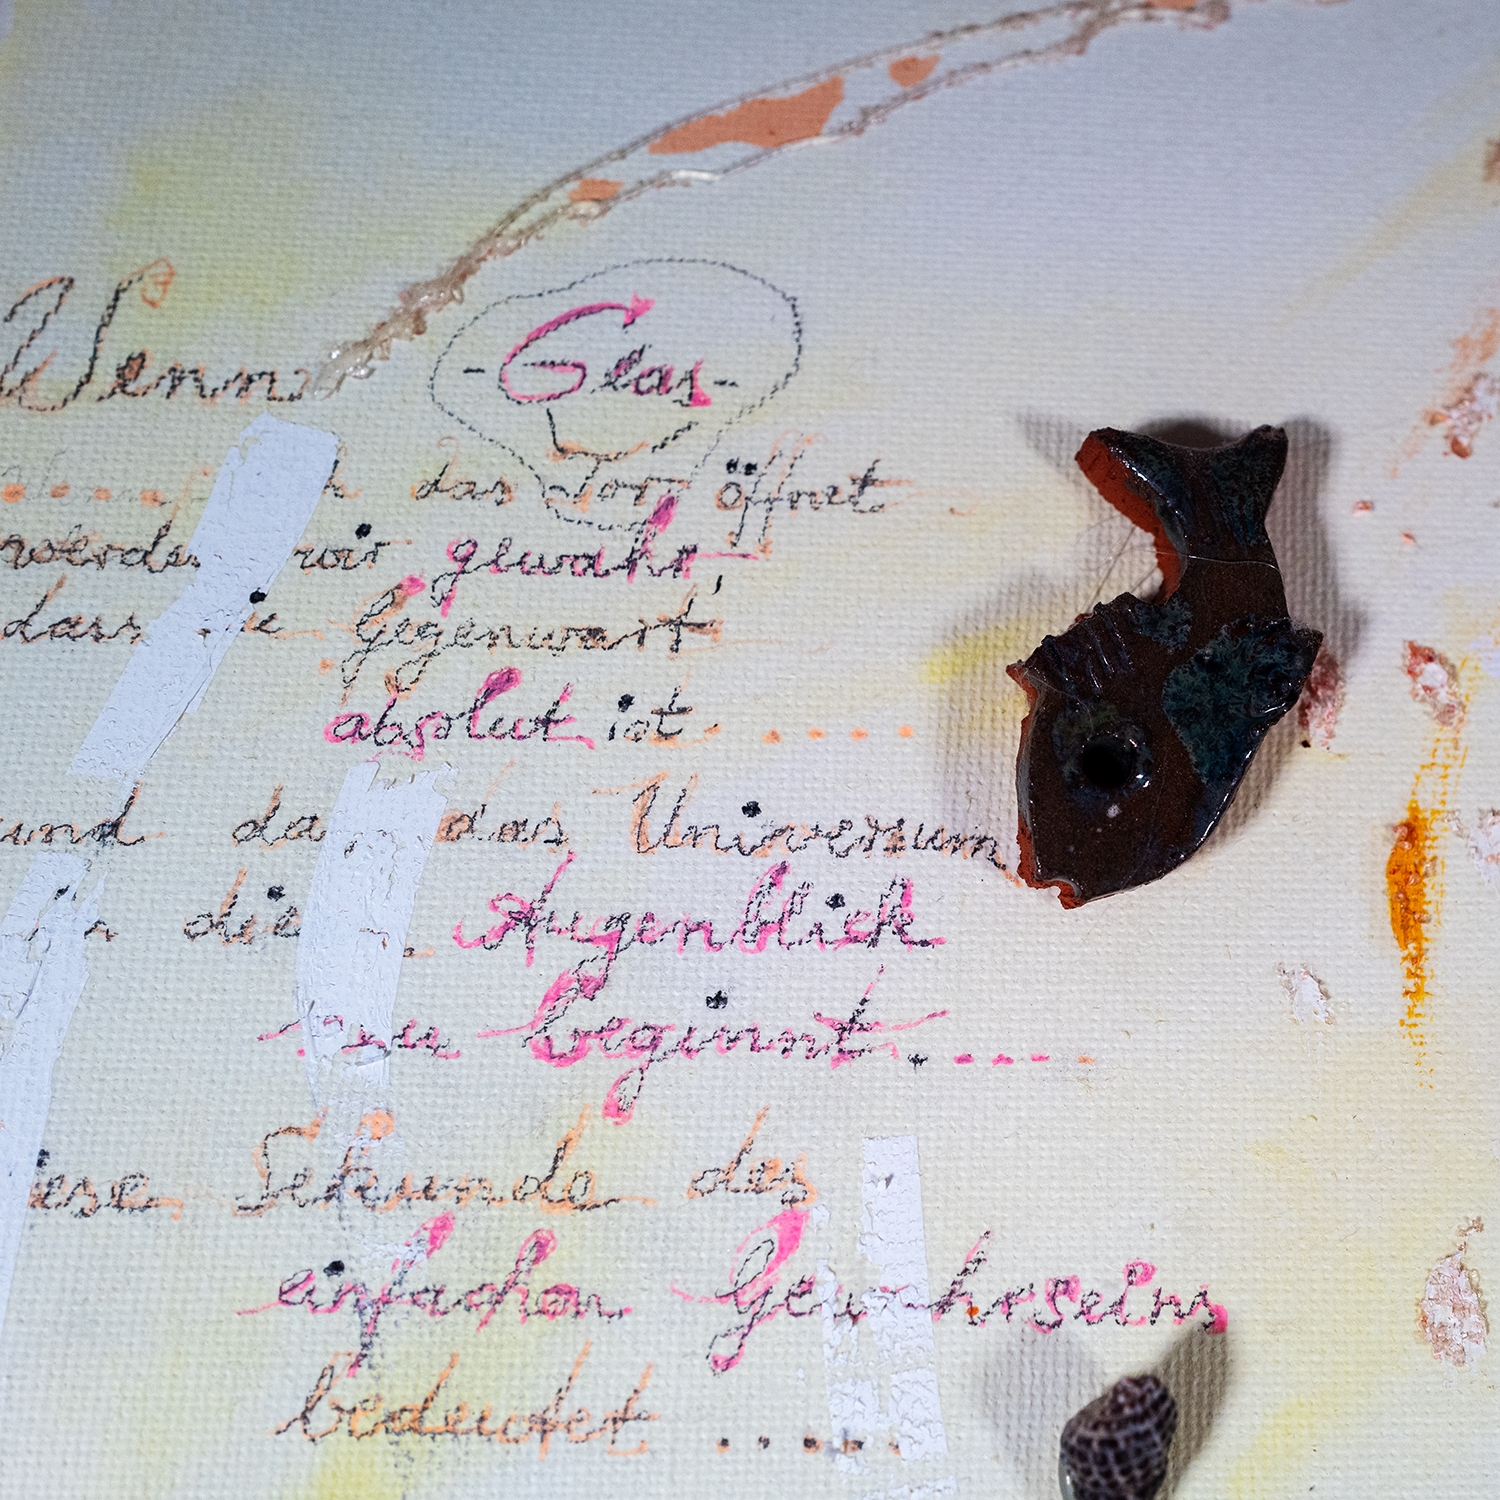 Wenn -Glas-
das Tor öffnet
wir gewahr,
dass Gegenwart
absolut ist .....
und das Universum
die Augenblick
beginnt.....
Sekunde des
einfachen Gewahrseins
bedeutet .....